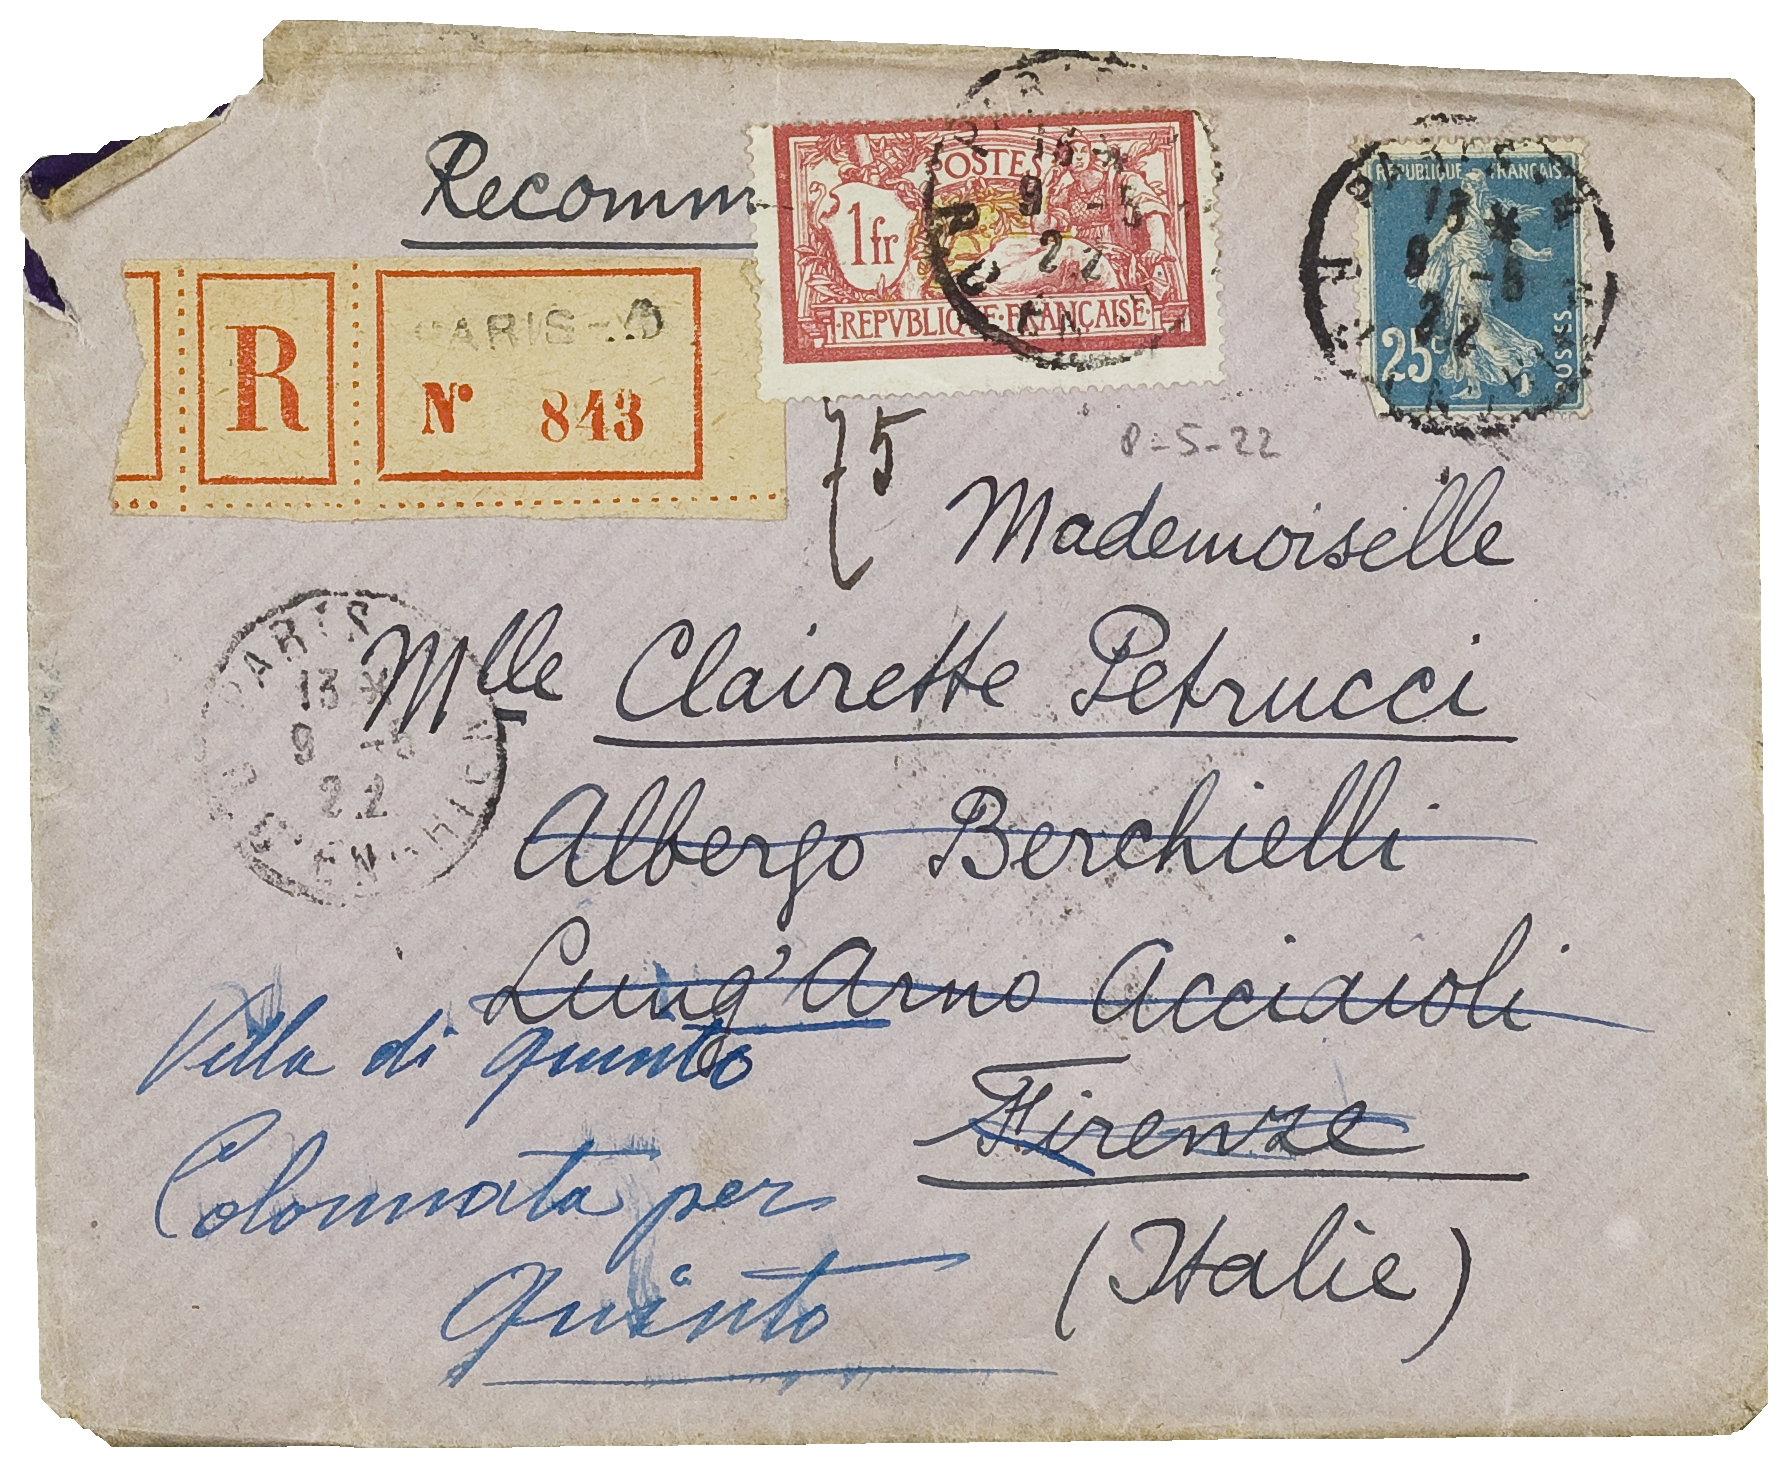 Recomm
POSTES
1 fr
REPVBLIQUE FRANÇAISE
PARIS
13 *
9 -5
22
RÉPUBLIQUE FRANÇAISE
25c
POSTES
13 *
9 -5
22
R
PARIS
N° 843
75
8-5-22
Mademoiselle
Mlle Clairette Petrucci
Albergo Berchielli
Lung'Arno Acciaioli
Firenze
(Italie)
PARIS
13 *
9 -5
22
Villa di Quinto
Colonnata per
Quinto